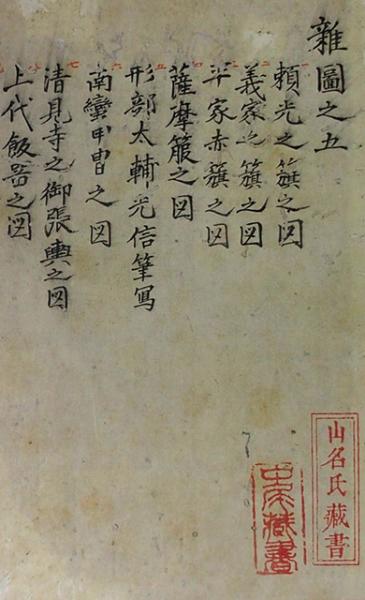 雑圖之五
頼光之籏之図
義家之籏之図
平家赤籏之図
薩摩箙之図
形部太輔光信筆写
南蠻甲冑之図
清見寺之御張輿之図
上代飯器之図
山名氏藏書
藏書